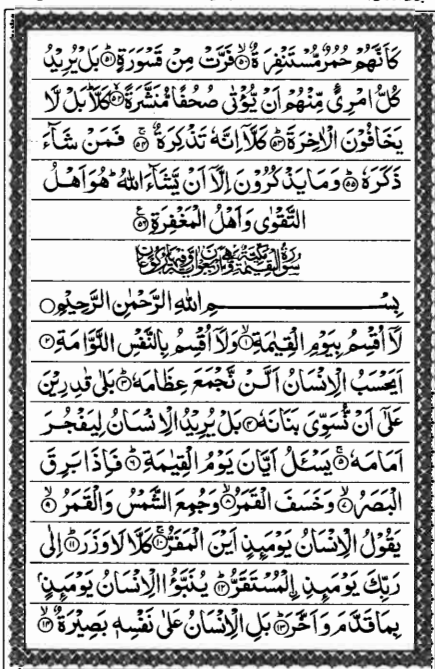 كَاَنَّهُمْ حُمُرٌ مُّسْتَنْفِرَةٌ ﴿۵۰﴾ فَرَّتْ مِنْ قَسْوَرَةٍ ﴿۵۱﴾ بَلْ يُرِيْدُ
كُلُّ امْرِئٍ مِّنْهُمْ اَنْ يُّؤْتٰى صُحُفًا مُّنَشَّرَةً ﴿۵۲﴾ كَلَّا ؕ بَلْ لَّا
يَخَافُوْنَ الْاٰخِرَةَ ﴿۵۳﴾ كَلَّاۤ اِنَّهٗ تَذْكِرَةٌ ﴿۵۴﴾ فَمَنْ شَآءَ
ذَكَرَهٗ ﴿۵۵﴾ وَمَا يَذْكُرُوْنَ اِلَّاۤ اَنْ يَّشَآءَ اللّٰهُ ؕ هُوَ اَهْلُ
التَّقْوٰى وَاَهْلُ الْمَغْفِرَةِ ﴿۵۶﴾
بِسْمِ اللّٰهِ الرَّحْمٰنِ الرَّحِيْمِ
لَاۤ اُقْسِمُ بِيَوْمِ الْقِيٰمَةِ ﴿۱﴾ وَلَاۤ اُقْسِمُ بِالنَّفْسِ اللَّوَّامَةِ ﴿۲﴾
اَيَحْسَبُ الْاِنْسَانُ اَلَّنْ نَّجْمَعَ عِظَامَهٗ ﴿۳﴾ بَلٰى قٰدِرِيْنَ
عَلٰۤى اَنْ نُّسَوِّىَ بَنَانَهٗ ﴿۴﴾ بَلْ يُرِيْدُ الْاِنْسَانُ لِيَفْجُرَ
اَمَامَهٗ ﴿۵﴾ يَسْئَلُ اَيَّانَ يَوْمُ الْقِيٰمَةِ ﴿۶﴾ فَاِذَا بَرِقَ
الْبَصَرُ ﴿۷﴾ وَخَسَفَ الْقَمَرُ ﴿۸﴾ وَجُمِعَ الشَّمْسُ وَالْقَمَرُ ﴿۹﴾
يَقُوْلُ الْاِنْسَانُ يَوْمَئِذٍ اَيْنَ الْمَفَرُّ ﴿۱۰﴾ كَلَّا لَا وَزَرَ ﴿۱۱﴾ اِلٰى
رَبِّكَ يَوْمَئِذِ ۨالْمُسْتَقَرُّ ﴿۱۲﴾ يُنَبَّؤُا الْاِنْسَانُ يَوْمَئِذٍۭ
بِمَا قَدَّمَ وَاَخَّرَ ﴿۱۳﴾ بَلِ الْاِنْسَانُ عَلٰى نَفْسِهٖ بَصِيْرَةٌ ﴿۱۴﴾